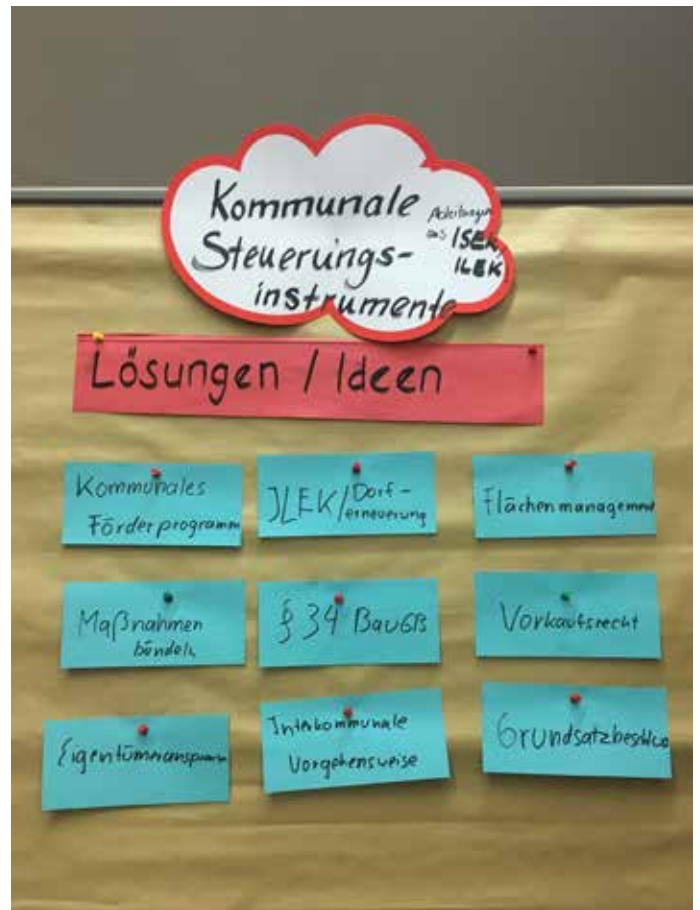 Kommunale
Steuerungs-
instrumente
Ableitungen
aus ISEK,
ILEK
Lösungen / Ideen
Kommunales
Förderprogramm
ILEK/Dorf-
erneuerung
Flächenmanagement
Maßnahmen
bündeln
§ 34 BauGB
Vorkaufsrecht
Eigentümeransprache
Interkommunale
Vorgehensweise
Grundsatzbeschluss